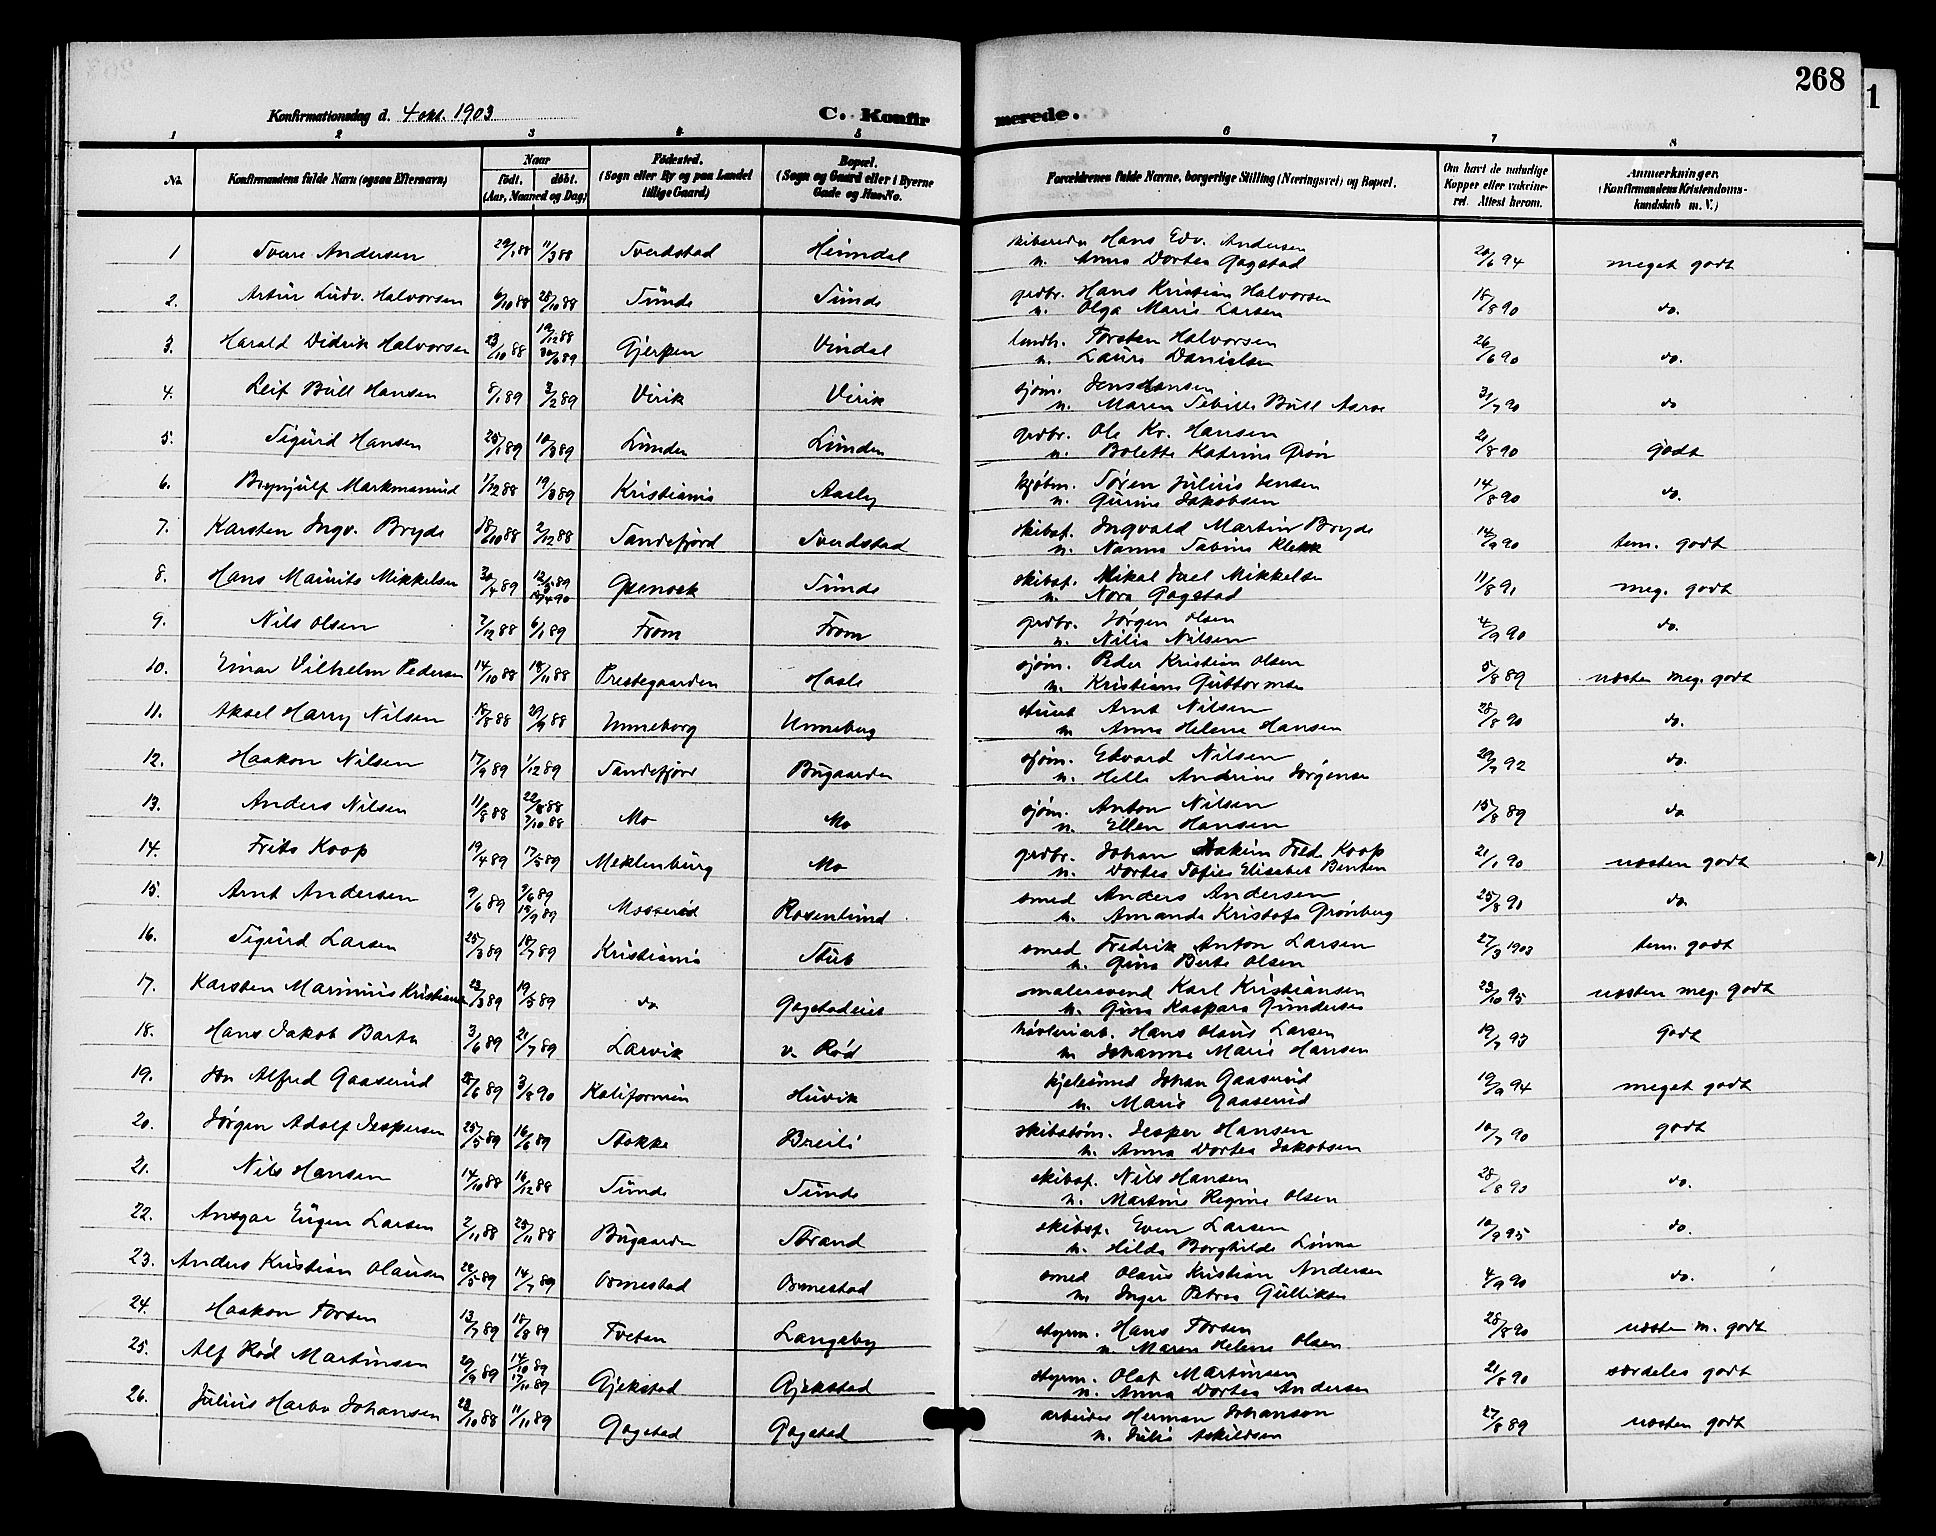 268
1
Konfirmationsdag d. 4 okt. 1903
C. Konfirmerede.
1 2 3 4 5 6 7 8
No. Konfirmandens fulde Navn (ogsaa Efternavn) Naar født. døbt. (Aar, Maaned og Dag) Fødested. (Sogn eller By og paa Landet tillige Gaard) Bopæl. (Sogn og Gaard eller i Byerne Gade og Hus-No. Forældrenes fulde Navne, borgerlige Stilling (Næringsvei) og Bopæl. Om havt de naturlige Kopper eller vakcineret. Attest herom. Anmerkninger. (Konfirmandens Kristendomskundskab m. V.)
1 Sverre Andersen 29/1 88 11/3 88 Tverdstad Heimdal skibsreder Hans Edv. Andersen 20/6 94 meget godt
n. Anna Dortea Gogstad
2. Artur Ludv. Halvorsen 6/10 88 28/10 88 Sunde Sunde grdbr. Hans Kristian Halvorsen 18/8 90 do.
n. Olga Marie Larsen
3. Harald Didrik Halvorsen 23/10 88 19/12 88 Gjerpen Vindal landh. Torsten Halvorsen 26/6 90 do.
30/6 89 n. Laura Danielsen
4. Leif Bull Hansen 8/1 89 3/2 89 Virik Virik sjøm. Jens Hansen 31/7 90 do
n. Maren Sebille Bull Aarøe
5. Sigurd Hansen 25/1 89 10/3 89 Lunden Lunden grdbr. Ole Kr. Hansen 21/8 90 godt
n. Bolette Katrine Grøn
6. Brynjulf Markmanrud 1/12 88 19/3 89 Kristiania Aasly kjøbm. Søren Julius Jensen 14/8 90 do.
n. Gurine Jakobsen
7. Karsten Ingv. Bryde 18/10 88 2/12 88 Sandefjord Tverdstad skibsf. Ingvald Martin Bryde 14/9 90 tem. godt
n. Nanna Sabine Klerk
8. Hans Mauritz Mikkelsen 30/4 89 12/5 89 Grenosk Sunde skibsf. Mikal Joel Mikkelsen 11/8 91 meg. godt
n. Nora Gogstad
9. Nils Olsen 7/12 88 6/1 89 From From grdbr. Jørgen Olsen 4/9 90 do.
n. Nilia Nilsen
10. Einar Vilhelm Pedersen 14/10 88 18/11 88 Prestegaarden Hasle sjøm. Peder Kristian Olsen 5/8 89 næsten meg. godt
n. Kristiane Guttormsen
11. Aksel Harry Nilsen 18/8 88 29/9 88 Unneberg Unneberg stuert Arnt Nilsen 28/8 90 do.
n. Anna Helene Hansen
12. Haakon Nilsen 17/9 89 1/12 89 Sandefjord Bugaarden sjøm. Edvard Nilsen 29/7 92 do.
n. Helle Andrine Jørgensen
13. Anders Nilsen 11/8 88 22/8 88 Mo Mo sjøm. Anton Nilsen 15/8 89 do
7/10 88 n. Ellen Hansen
14. Frits Koop 19/4 89 17/5 89 Meklenburg Mo grdbr. Johan Joakim Fred. Koop 21/1 90 næsten godt
n. Dortea Sofie Elisabet Benten
15. Arnt Andersen 9/6 89 9/6 89 Mosserød Rosenlund smed Anders Andersen 25/8 91 do.
15/9 89 n. Amanda Kristofa Grønberg
16. Sigurd Larsen 25/3 89 18/7 89 Kristiania Stub smed Fredrik Anton Larsen 27/3 1903 tem. godt
n. Gina Berte Olsen
17. Karsten Marinius Kristiansen 23/3 89 19/5 89 do Gogstadeie malersvend Karl Kristiansen 23/10 95 næsten meg. godt
n. Gina Kaspara Gundersen
18. Hans Jakob Barta 3/6 89 21/7 89 Larvik v. Rød høvleriarb. Hans Olaus Larsen 19/7 93 godt
n. Johanne Marie Hansen
19. Jon Alfred Gaaserud 28/6 89 3/8 90 Kalifornien Huvik kjelsmed Johan Gaaserud 19/9 94 meget godt
n. Marie Gaaserud
20. Jørgen Adolf Jespersen 25/5 89 16/6 89 Stokke Breili skibstøm. Jesper Hansen 10/7 90 godt
n. Anna Dortea Jakobsen
21. Nils Hansen 14/10 88 16/12 88 Sunde Sunde skibsf. Nils Hansen 28/8 90 do.
n. Martine Regine Olsen
22. Ansgar Eugen Larsen 2/11 88 25/11 88 Bugaarden Strand skibsf. Even Larsen 10/9 95 do.
n. Hilda Borghilde Linna
23. Anders Kristian Olausen 22/5 89 14/7 89 Ormestad Ormestad smed Olaus Kristian Andersen 4/9 90 do.
n. Inger Petrea Gulliksen
24. Haakon Torsen 13/7 89 18/8 89 Tveten Langeby styrm. Hans Torsen 28/8 90 næsten m. godt
n. Maren Helene Olsen
25. Alf Rød Martinsen 29/9 89 14/10 89 Gjekstad Gjekstad styrm. Olaf Martinsen 21/8 90 særdeles godt
17/11 89 n. Anna Dortea Andersen
26. Julius Harbo Johansen 28/10 88 11/11 89 Gogstad Gogstad arbeider Herman Johanson 27/8 89 næsten godt
n. Julie Askildsen